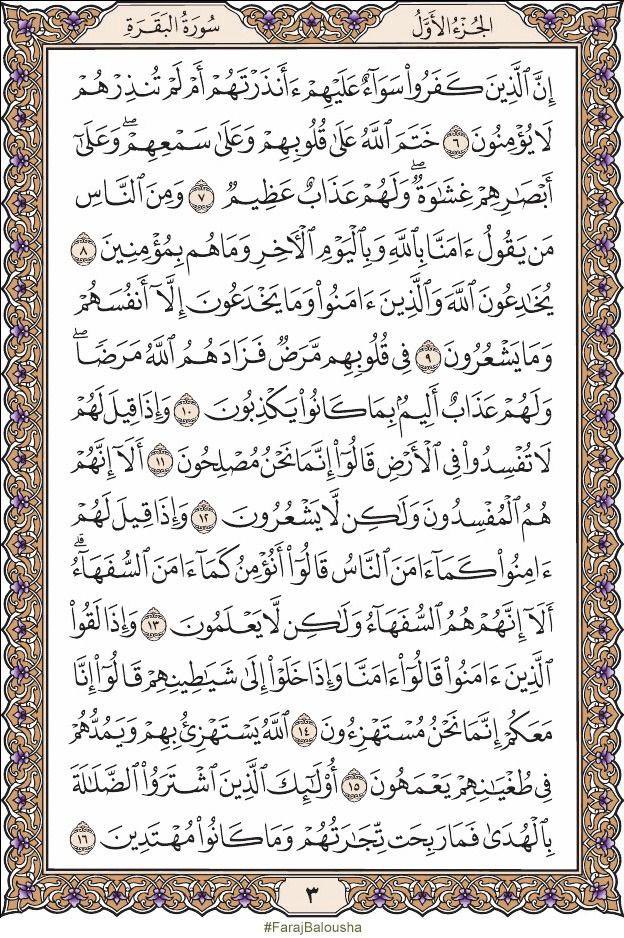 الجُزْءُ الأَوَّلُ
سُورَةُ البَقَرَةِ
إِنَّ ٱلَّذِينَ كَفَرُوا۟ سَوَآءٌ عَلَيْهِمْ ءَأَنذَرْتَهُمْ أَمْ لَمْ تُنذِرْهُمْ
لَا يُؤْمِنُونَ ٦ خَتَمَ ٱللَّهُ عَلَىٰ قُلُوبِهِمْ وَعَلَىٰ سَمْعِهِمْ ۖ وَعَلَىٰٓ
أَبْصَٰرِهِمْ غِشَٰوَةٌ ۖ وَلَهُمْ عَذَابٌ عَظِيمٌ ٧ وَمِنَ ٱلنَّاسِ
مَن يَقُولُ ءَامَنَّا بِٱللَّهِ وَبِٱلْيَوْمِ ٱلْـَٔاخِرِ وَمَا هُم بِمُؤْمِنِينَ ٨
يُخَٰدِعُونَ ٱللَّهَ وَٱلَّذِينَ ءَامَنُوا۟ وَمَا يَخْدَعُونَ إِلَّآ أَنفُسَهُمْ
وَمَا يَشْعُرُونَ ٩ فِى قُلُوبِهِم مَّرَضٌ فَزَادَهُمُ ٱللَّهُ مَرَضًا ۖ
وَلَهُمْ عَذَابٌ أَلِيمٌۢ بِمَا كَانُوا۟ يَكْذِبُونَ ١٠ وَإِذَا قِيلَ لَهُمْ
لَا تُفْسِدُوا۟ فِى ٱلْأَرْضِ قَالُوٓا۟ إِنَّمَا نَحْنُ مُصْلِحُونَ ١١ أَلَآ إِنَّهُمْ
هُمُ ٱلْمُفْسِدُونَ وَلَٰكِن لَّا يَشْعُرُونَ ١٢ وَإِذَا قِيلَ لَهُمْ
ءَامِنُوا۟ كَمَآ ءَامَنَ ٱلنَّاسُ قَالُوٓا۟ أَنُؤْمِنُ كَمَآ ءَامَنَ ٱلسُّفَهَآءُ ۗ
أَلَآ إِنَّهُمْ هُمُ ٱلسُّفَهَآءُ وَلَٰكِن لَّا يَعْلَمُونَ ١٣ وَإِذَا لَقُوا۟
ٱلَّذِينَ ءَامَنُوا۟ قَالُوٓا۟ ءَامَنَّا وَإِذَا خَلَوْا۟ إِلَىٰ شَيَٰطِينِهِمْ قَالُوٓا۟ إِنَّا
مَعَكُمْ إِنَّمَا نَحْنُ مُسْتَهْزِءُونَ ١٤ ٱللَّهُ يَسْتَهْزِئُ بِهِمْ وَيَمُدُّهُمْ
فِى طُغْيَٰنِهِمْ يَعْمَهُونَ ١٥ أُو۟لَٰٓئِكَ ٱلَّذِينَ ٱشْتَرَوُا۟ ٱلضَّلَٰلَةَ
بِٱلْهُدَىٰ فَمَا رَبِحَت تِّجَٰرَتُهُمْ وَمَا كَانُوا۟ مُهْتَدِينَ ١٦
٣
#FarajBalousha